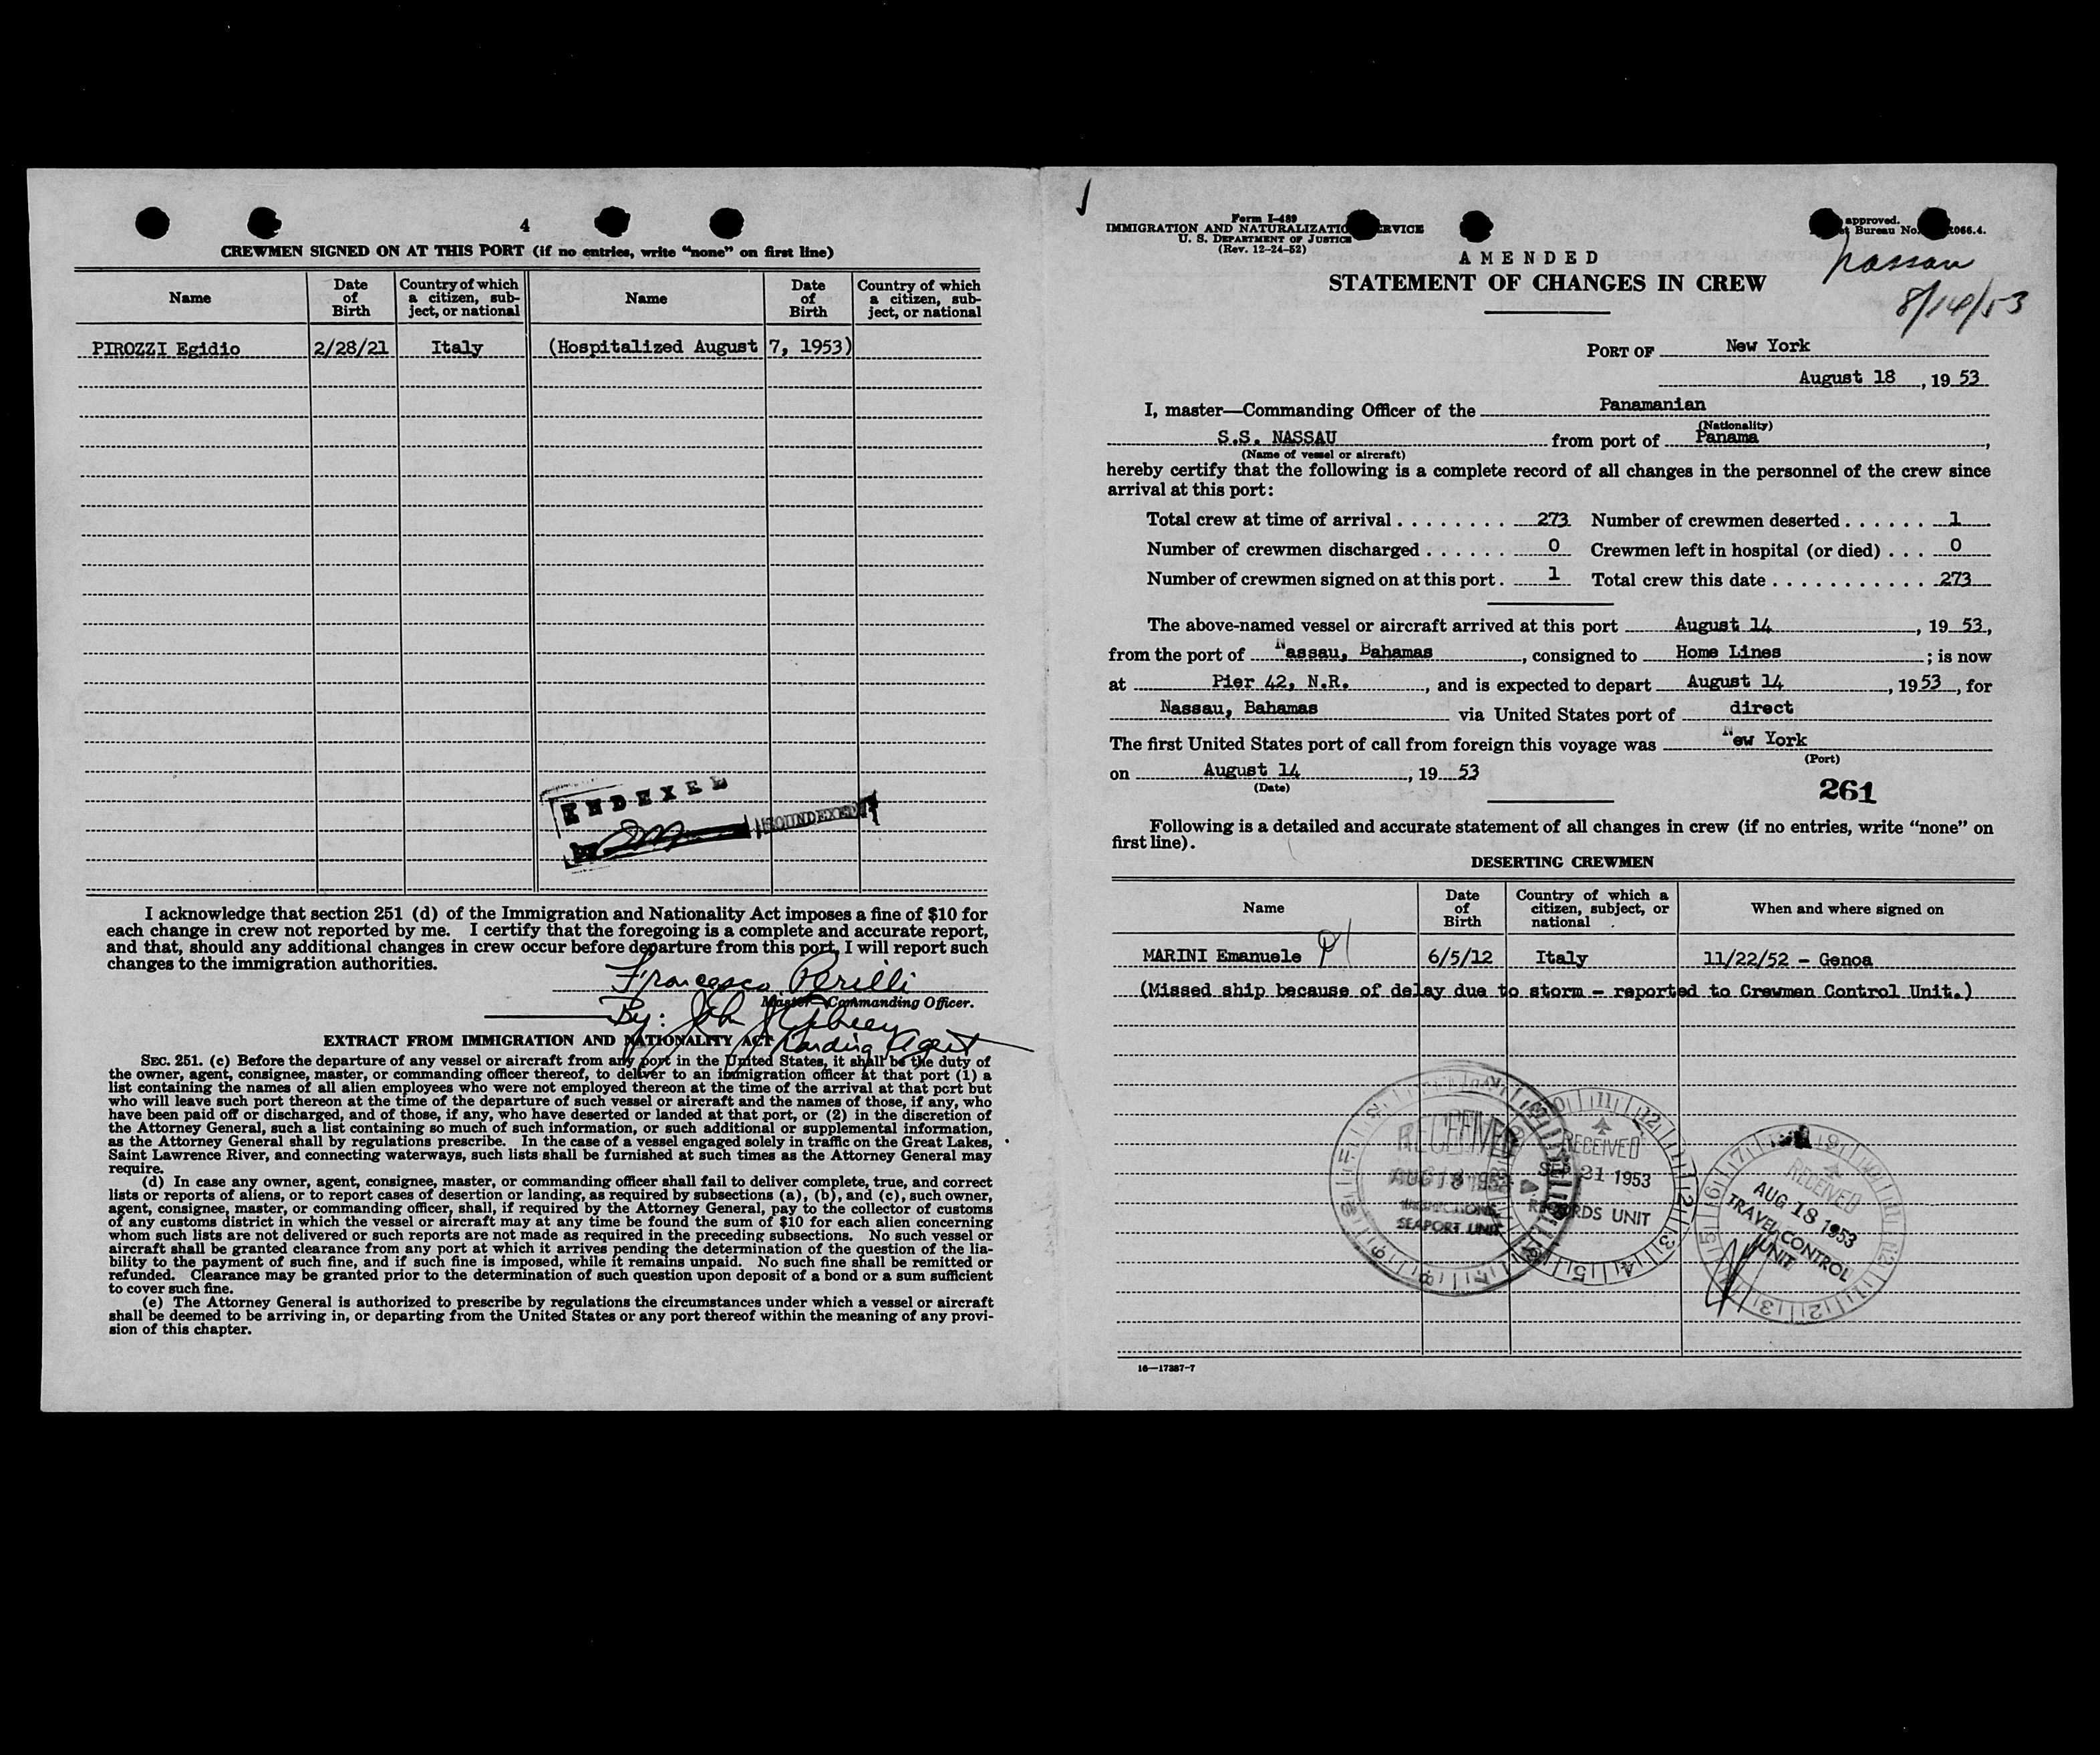 4
CREWMEN SIGNED ON AT THIS PORT (if no entries, write "none" on first line)
Name Date of Birth Country of which a citizen, subject, or national Name Date of Birth Country of which a citizen, subject, or national
PIROZZI Egidio 2/28/21 Italy (Hospitalized August 7, 1953)
INDEXED
by
I acknowledge that section 251 (d) of the Immigration and Nationality Act imposes a fine of $10 for
each change in crew not reported by me. I certify that the foregoing is a complete and accurate report,
and that, should any additional changes in crew occur before departure from this port, I will report such
changes to the immigration authorities.
Francesco Perilli
Master—Commanding Officer.
By: John
EXTRACT FROM IMMIGRATION AND NATIONALITY ACT
SEC. 251. (c) Before the departure of any vessel or aircraft from any port in the United States, it shall be the duty of
the owner, agent, consignee, master, or commanding officer thereof, to deliver to an immigration officer at that port (1) a
list containing the names of all alien employees who were not employed thereon at the time of the arrival at that port but
who will leave such port thereon at the time of the departure of such vessel or aircraft and the names of those, if any, who
have been paid off or discharged, and of those, if any, who have deserted or landed at that port, or (2) in the discretion of
the Attorney General, such a list containing so much of such information, or such additional or supplemental information,
as the Attorney General shall by regulations prescribe. In the case of a vessel engaged solely in traffic on the Great Lakes,
Saint Lawrence River, and connecting waterways, such lists shall be furnished at such times as the Attorney General may
require.
(d) In case any owner, agent, consignee, master, or commanding officer shall fail to deliver complete, true, and correct
lists or reports of aliens, or to report cases of desertion or landing, as required by subsections (a), (b), and (c), such owner,
agent, consignee, master, or commanding officer, shall, if required by the Attorney General, pay to the collector of customs
of any customs district in which the vessel or aircraft may at any time be found the sum of $10 for each alien concerning
whom such lists are not delivered or such reports are not made as required in the preceding subsections. No such vessel or
aircraft shall be granted clearance from any port at which it arrives pending the determination of the question of the lia-
bility to the payment of such fine, and if such fine is imposed, while it remains unpaid. No such fine shall be remitted or
refunded. Clearance may be granted prior to the determination of such question upon deposit of a bond or a sum sufficient
to cover such fine.
(e) The Attorney General is authorized to prescribe by regulations the circumstances under which a vessel or aircraft
shall be deemed to be arriving in, or departing from the United States or any port thereof within the meaning of any provi-
sion of this chapter.
Form I-489
IMMIGRATION AND NATURALIZATIO RVICE
U. S. DEPARTMENT OF JUSTICE
(Rev. 12-24-52)
approved.
Bureau No. 066.4.
Nassau
8/14/53
AMENDED
STATEMENT OF CHANGES IN CREW
PORT OF New York
August 18, 19 53
I, master—Commanding Officer of the Panamanian
(Nationality)
S.S. NASSAU from port of Panama,
(Name of vessel or aircraft)
hereby certify that the following is a complete record of all changes in the personnel of the crew since
arrival at this port:
Total crew at time of arrival . . . . . . . . 273 Number of crewmen deserted . . . . . . 1
Number of crewmen discharged . . . . . . 0 Crewmen left in hospital (or died) . . . 0
Number of crewmen signed on at this port . 1 Total crew this date . . . . . . . . . . . 273
The above-named vessel or aircraft arrived at this port August 14, 19 53,
from the port of Nassau, Bahamas, consigned to Home Lines; is now
at Pier 42, N.R., and is expected to depart August 14, 19 53, for
Nassau, Bahamas via United States port of direct
The first United States port of call from foreign this voyage was New York
(Port)
on August 14, 19 53
(Date)
261
Following is a detailed and accurate statement of all changes in crew (if no entries, write "none" on
first line).
DESERTING CREWMEN
Name Date of Birth Country of which a citizen, subject, or national When and where signed on
MARINI Emanuele 6/5/12 Italy 11/22/52 - Genoa
(Missed ship because of delay due to storm - reported to Crewmen Control Unit.)
RECEIVED
AUG 18 1953
SEAPORT UNIT
RECEIVED
SEP 21 1953
RECORDS UNIT
RECEIVED
AUG 18 1953
TRAVEL CONTROL
UNIT
16—17387-7